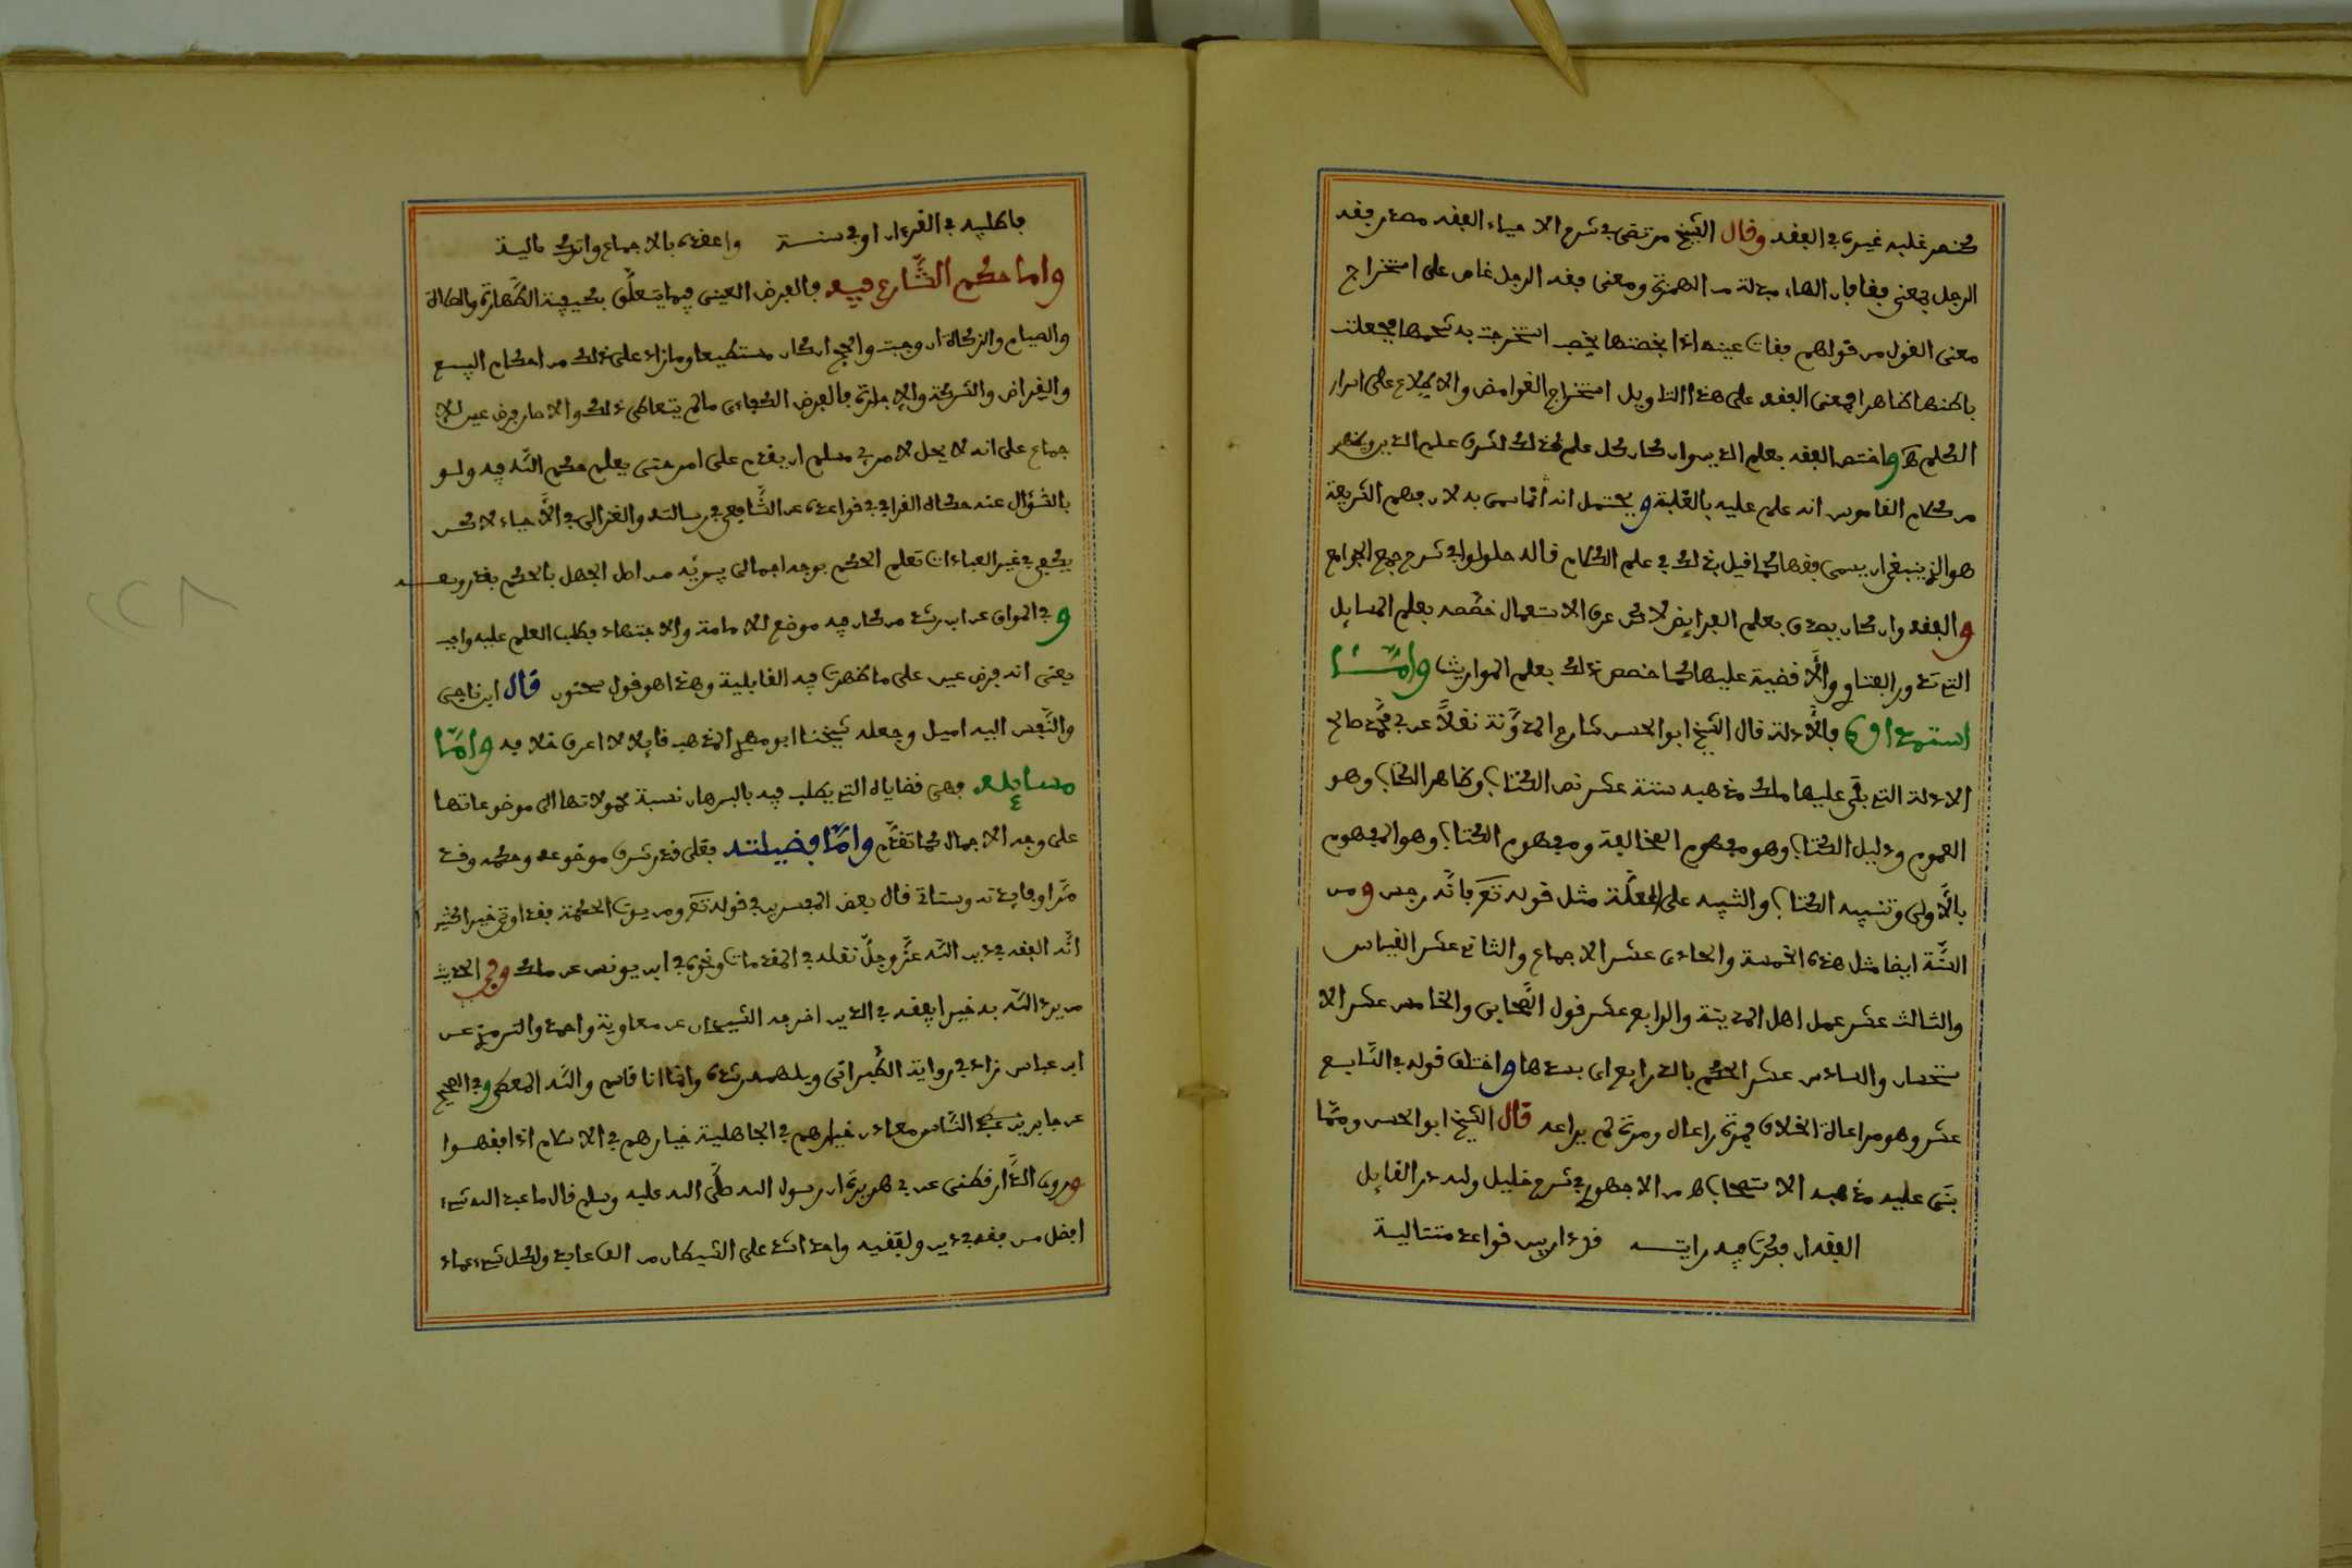 مختصر غلبه غيره في الفقه وقال الشيخ مرتضى في شرح الاحياء الفقه مصدر فقه
الرجل بمعنى فقا فان الهاء مبدلة من الهمزة ومعنى فقه الرجل غاص على استخراج
معنى القول من قولهم فقات عينه اذا بخصتها بخص استخرجت به شحمها فجعلت
باطنها ظاهرا فمعنى الفقه على هذا التاويل استخراج الغوامض والاطلاع على اسرار
الكلم واختص الفقه بعلم الدين وان كان كل علم كذلك لشرف علم الدين ويظهر
من كلام القاموس انه علم عليه بالغلبة ويحتمل انه انما سمي به لان فهم الشريعة
هو الذي ينبغي ان يسمى فقها كما قيل بذلك في علم الكلام قاله حلولو في شرح جمع الجوامع
والفقه وان كان يصدق بعلم الفرايض لاكن عرف الاستعمال خصصه بعلم المسايل
التي تدور الفتاوي والاقضية عليها كما خصص ذلك بعلم المواريث وامــا
استمداده فالادلة قال الشيخ ابو الحسن شارح المدونة نقلا عن ابي محمد صالح
الادلة التي بنى عليها ملك مذهبه ستة عشر نص الكتاب وظاهر الكتاب وهو
العموم ودليل الكتاب وهو مفهوم المخالفة ومفهوم الكتاب وهو المفهوم
بالاولى وتنبيه الكتاب والتنبيه على العلة مثل قوله تعلى فانه رجس ومن
السنة ايضا مثل هذه الخمسة والحادي عشر الاجماع والثاني عشر القياس
والثالث عشر عمل اهل المدينة والرابع عشر قول الصحابي والخامس عشر الا
ستحسان والسادس عشر الحكم بالذرايع اي بسدها واختلف قوله في السابع
عشر وهو مراعاة الخلاف فمرة راعاه ومرة لم يراعه قال الشيخ ابو الحسن ومما
بنى عليه مذهبه الاستصحاب اهـ من الاجهوري في شرح خليل ولله در القايل
الفقه ان فكرت فيه رايته فردا ربين قواعد متتالية
فاطلبه في القرءان او في سنة واعضده بالاجماع واترك ماليه
واما حكم الشارع فيه فالفرض العيني فيما يتعلق بكيفية الطهارة والصلاة
والصيام والزكاة ان وجبت والحج ان كان مستطيعا وما زاد على ذلك من احكام البيع
والقراض والشركة والاجارة فالفرض الكفاءي ما لم يتعاطى ذلك والا صار فرض عين للا
جماع على انه لا يحل لامرئ مسلم ان يقدم على امر حتى يعلم حكم الله فيه ولو
بالسؤال عنه حكاه القرافي في قواعده عن الشافعي في رسالته والغزالي في الاحياء لاكن
يكفي في غير العبادات تعلم الحكم بوجه اجمالي يبريه من اصل الجهل بالحكم بقدر وسعــه
وفي المواق عن ابن رشد من كان فيه موضع للامامة والاجتهاد فطلب العلم عليه واجب
يعني انه فرض عين على ما ظهرت فيه القابلية وهذا هو قول سحنون قال ابن ناجي
والنفس اليه اميل وجعله شيخنا ابو مهدي المذهب قايلا لا اعرف خلافه واما
مسايله فهي قضاياه التي يطلب فيه بالبرهان نسبة محمولاتها الى موضوعاتها
على وجه الاجمال كما تقدم واما فضيلته فعلى قدر شرف موضوعه وحكمه وقد
مرا وفايدته وستاتي قال بعض المفسرين في قوله تعلى ومن يوت الحكمة فقد اوتي خيرا كثيرا
انه الفقه في دين الله عز وجل نقله في المقدمات ونحوه في ابن يونس عن ملك وفي الحديث
من يرد الله به خيرا يفقهه في الدين اخرجه الشيخان عن معاوية واحمد والترمذي عن
ابن عباس زاد في رواية الطبراني ويلهمه رشده وانما انا قاسم والله المعطي وفي الصحيح
عن جابر يرفعه الناس معادن خيارهم في الجاهلية خيارهم في الاسلام اذا فقهــوا
وروى الدارقطني عن ابي هريرة ان رسول الله صلى الله عليه وسلم قال ما عبد الله بشيء
افضل من فقه في دين ولفقيه واحد اشد على الشيطان من الف عابد ولكل شيء عماد